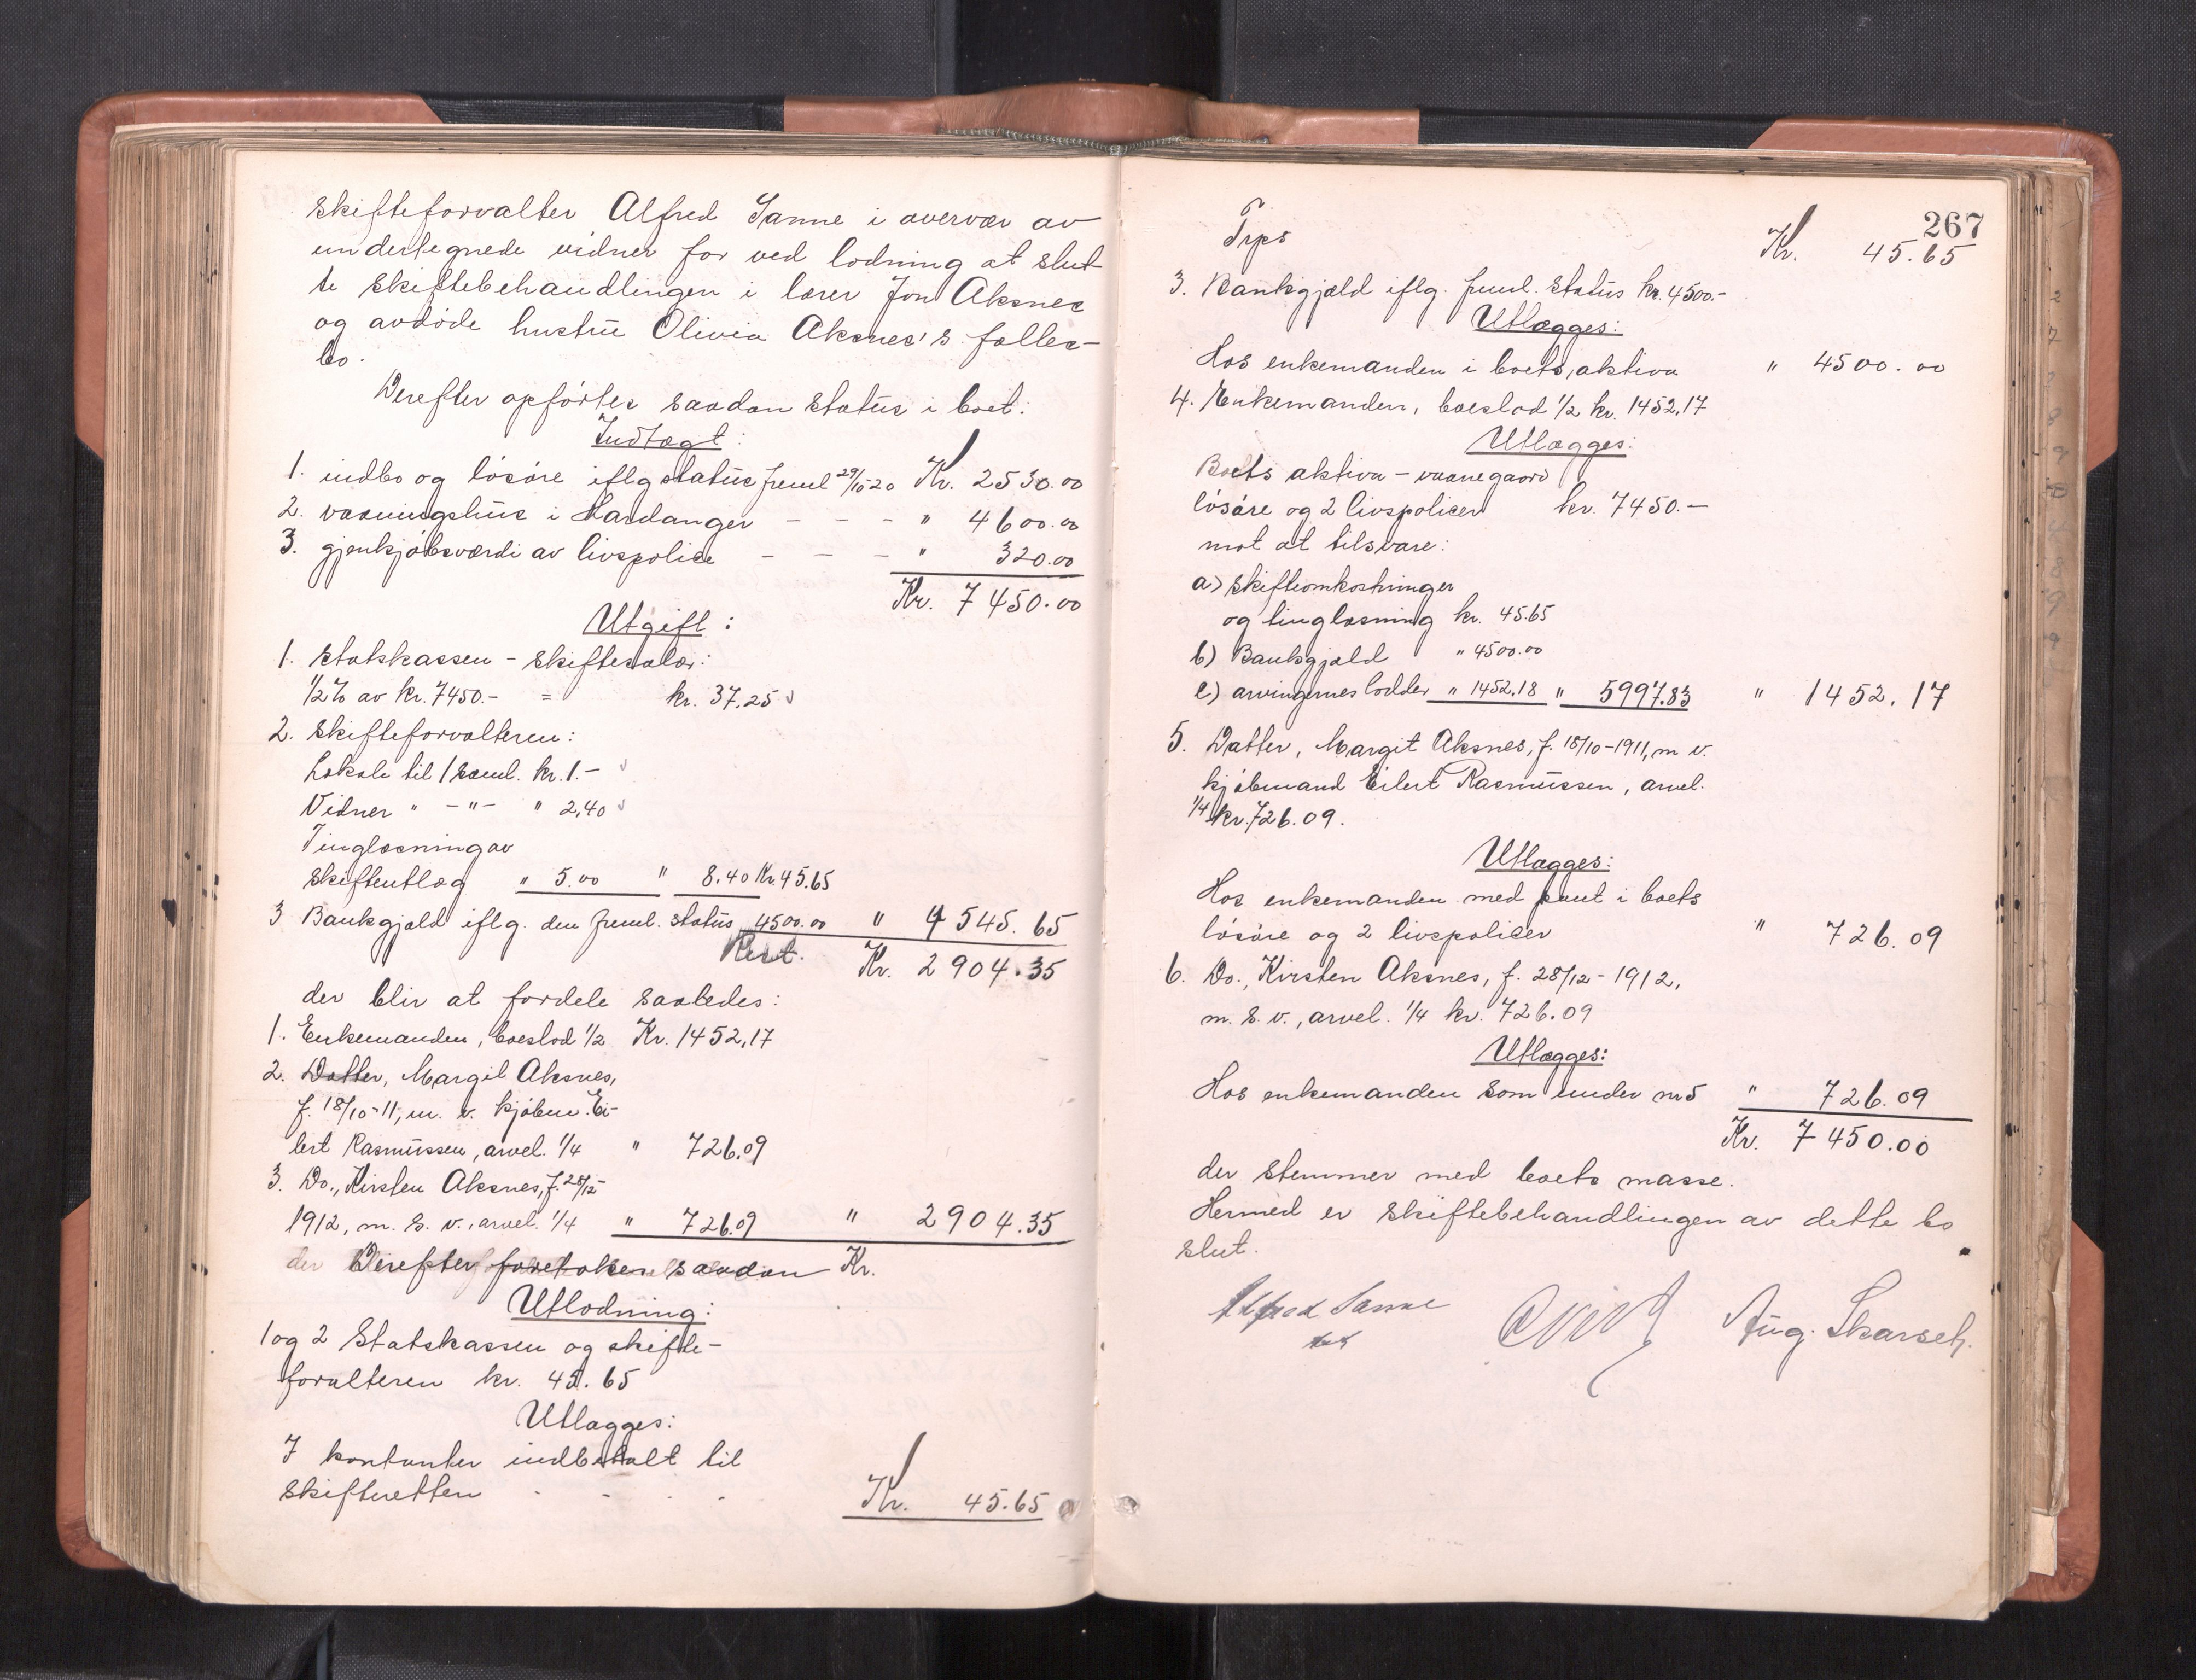 skifteforvalter Alfred Sanne i overvær av
undertegnede vidner for ved lodning at slut-
te skiftebehandlingen i lærer Jon Aksnes
og avdøde hustru Olivia Aksnes's fælles-
bo.
Derefter opførtes saadan status i boet:
Indtægt:
1. indbo og løsøre iflg status freml 29/10 20 Kr. 2530.00
2. vaaningshus i Hardanger - - - " 4600.00
3. gjenkjøbsværdi av livspolice - - - " 320.00
Kr. 7450.00
Utgift:
1. Statskassen - Skiftesalær:
1/2 % av kr. 7450.- = kr. 37.25
2. Skifteforvalteren:
Lokale til 1 saml. kr. 1.-
Vidner " - " - " 2,40
Tinglæsning av
skifteutlæg " 5.00 " 8.40 Kr. 45.65
3 Bankgjæld iflg. den freml. status 4500.00 " 4545.65
Rest. Kr. 2904.35
der blir at fordele saaledes:
1. Enkemanden, boeslod 1/2 Kr. 1452,17
2. Datter, Margit Aksnes,
f. 18/10-11, m. v. kjøbm. Ei-
lert Rasmussen, arvel. 1/4 " 726.09
3. Do., Kirsten Aksnes, f. 28/12-
1912, m. s. v., arvel. 1/4 " 726.09 " 2904.35
der Derefter foretokes saadan Kr.
Utlodning:
1 og 2 Statskassen og skifte-
forvalteren kr. 45.65
Utlægges:
I kontanter indbetalt til
skifteretten - - - - Kr. 45.65
267
Trps Kr. 45.65
3. Bankgjæld iflg. freml. status kr. 4500.-
Utlægges:
Hos enkemanden i boets aktiva " 4500.00
4. Enkemanden, boeslod 1/2 kr. 1452,17
Utlægges:
Boets aktiva - vaanegaard
løsøre og 2 livspolicer kr. 7450.-
mot at tilsvare:
a) skifteomkostninger
og tinglæsning kr. 45.65
b) Bankgjæld " 4500.00
c) arvingernes lodder " 1452.18 " 5997.83 " 1452.17
5. Datter, Margit Aksnes, f. 18/10-1911, m v.
kjøbmand Eilert Rasmussen, arvel.
1/4 kr. 726.09.
Utlægges:
Hos enkemanden med pant i boets
løsøre og 2 livspolicer " 726.09
6. Do., Kirsten Aksnes, f. 28/12-1912,
m. s. v., arvel. 1/4 kr. 726.09
Utlægges:
Hos enkemanden som under nr 5 " 726.09
Kr. 7450.00
der stemmer med boets masse.
Hermed er skiftebehandlingen av dette bo
slut.
Alfred Sanne
Aug. Skarseh.